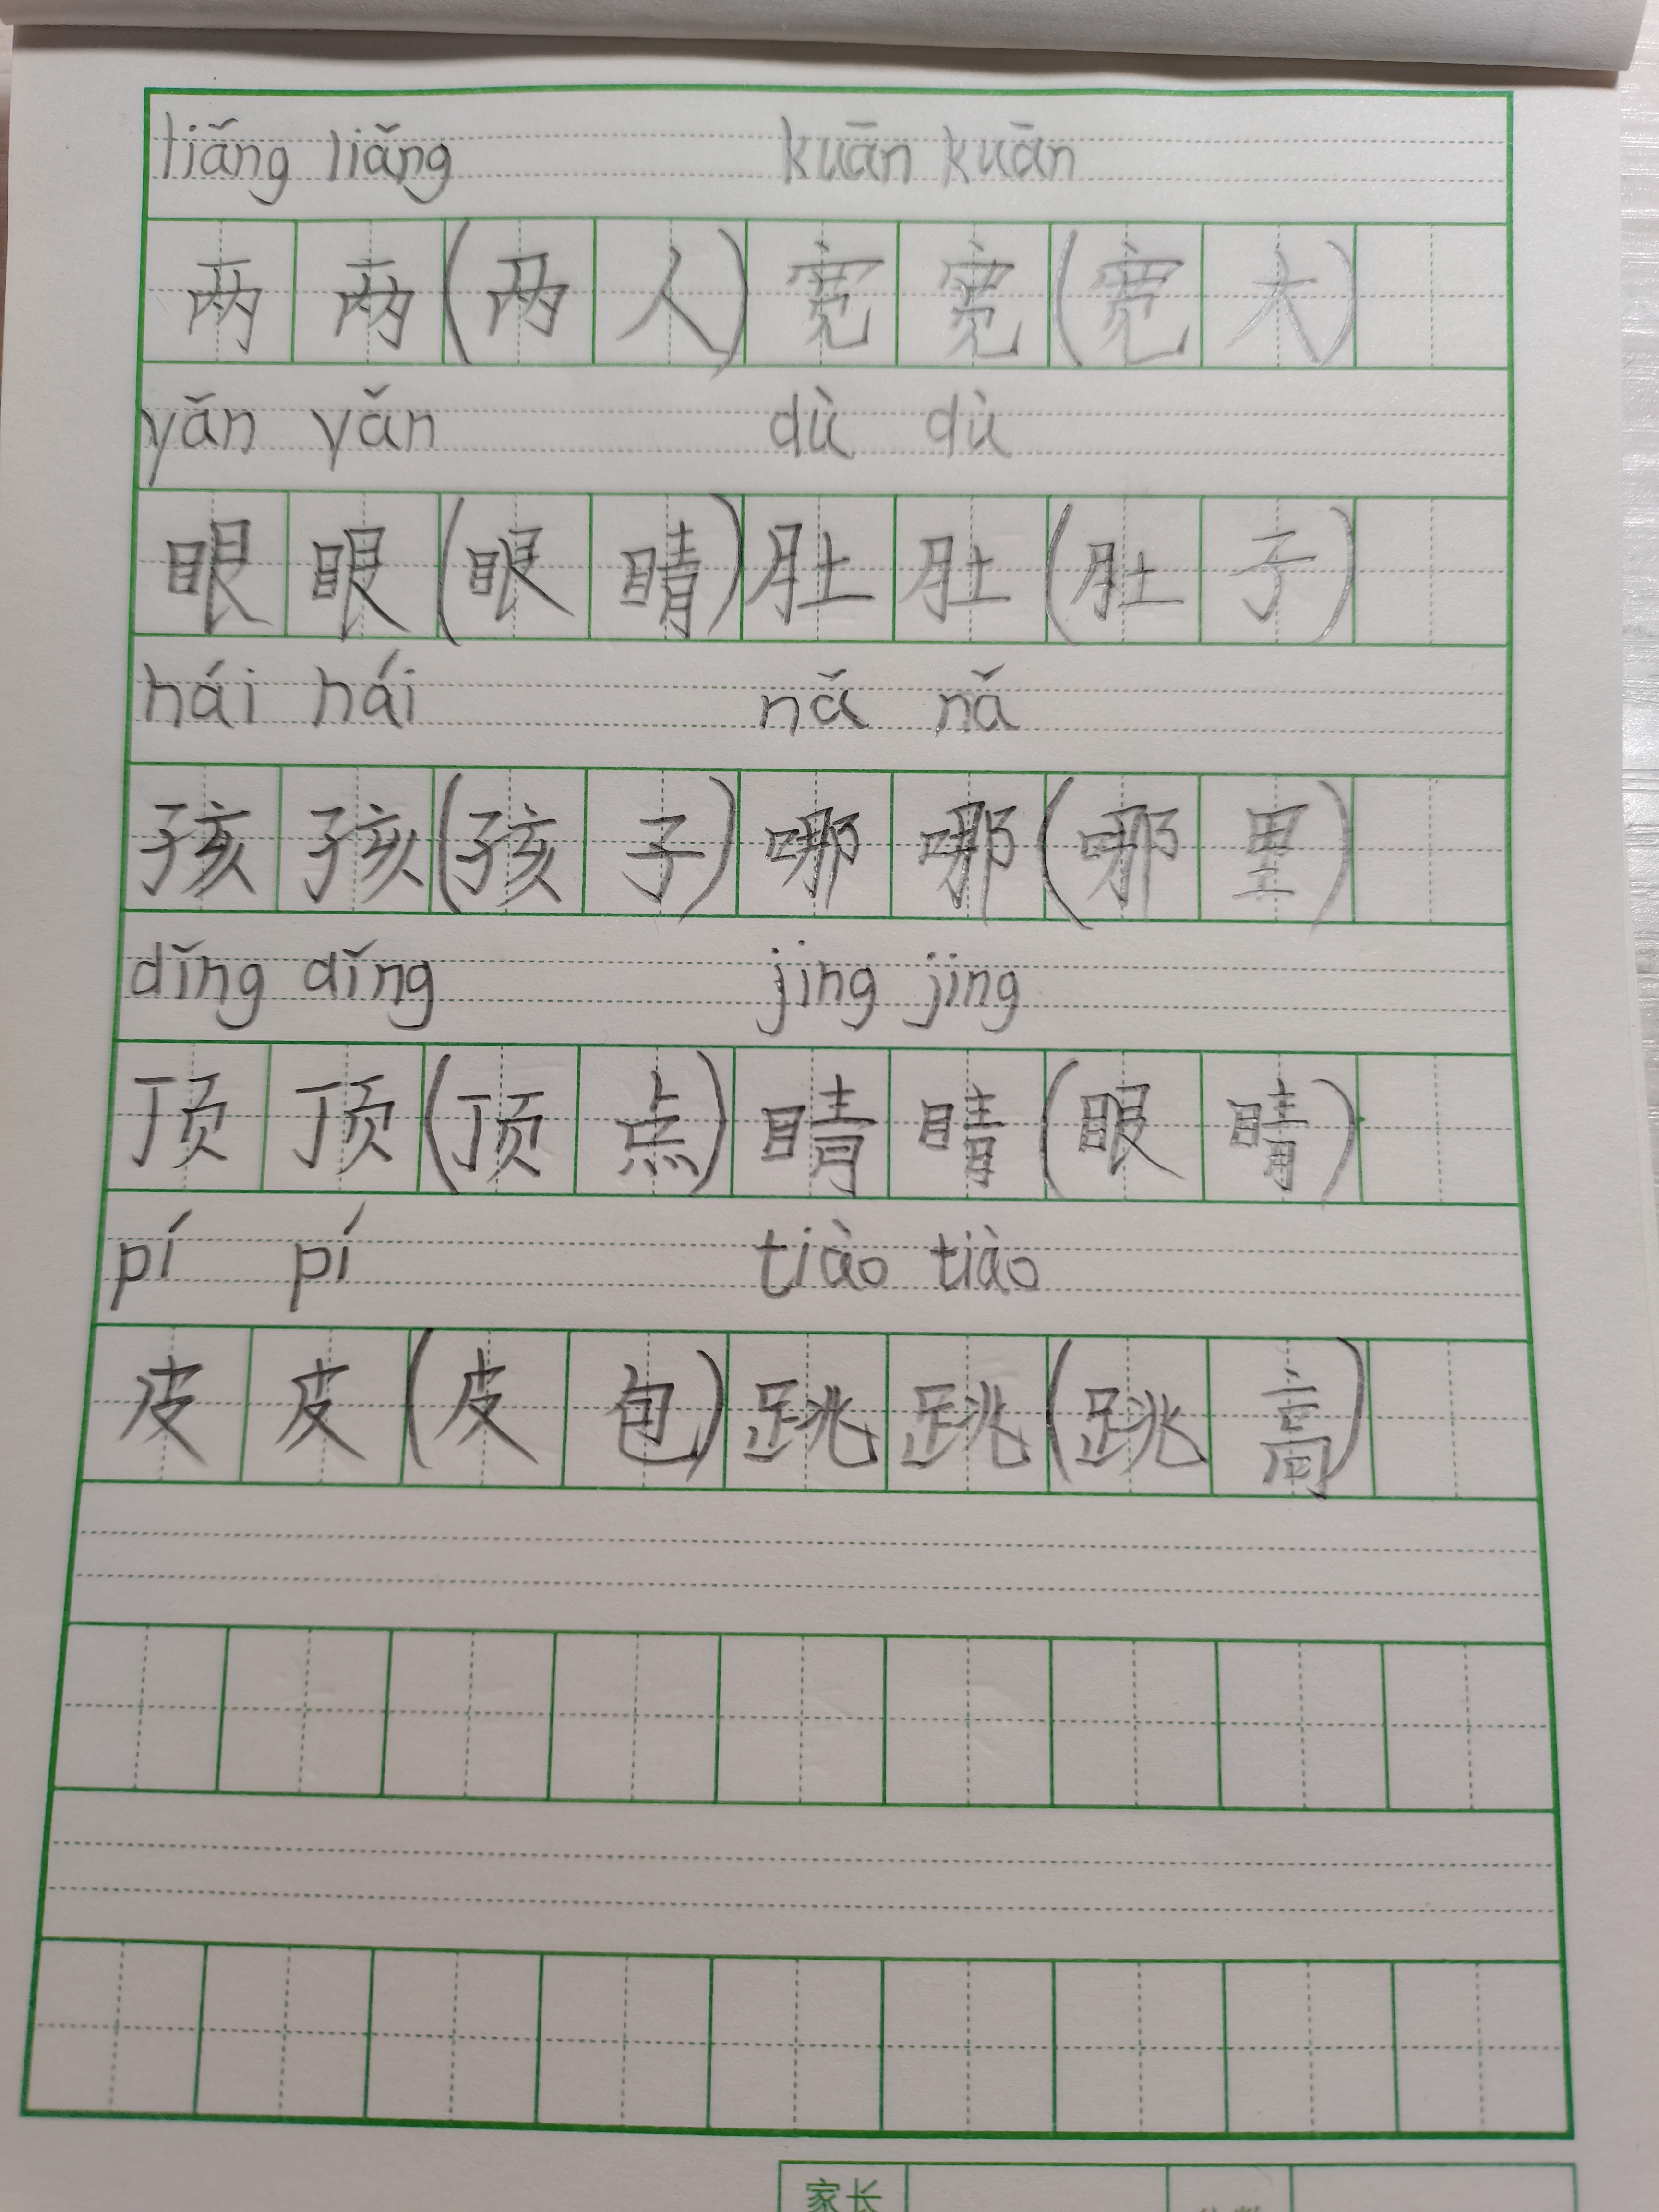 liǎng liǎng kuān kuān
两 两 (两 人) 宽 宽 (宽 大)
yǎn yǎn dù dù
眼 眼 (眼 睛) 肚 肚 (肚 子)
hái hái nǎ nǎ
孩 孩 (孩 子) 哪 哪 (哪 里)
dǐng dǐng jing jing
顶 顶 (顶 点) 睛 睛 (眼 睛)
pí pí tiào tiào
皮 皮 (皮 包) 跳 跳 (跳 高)
家长